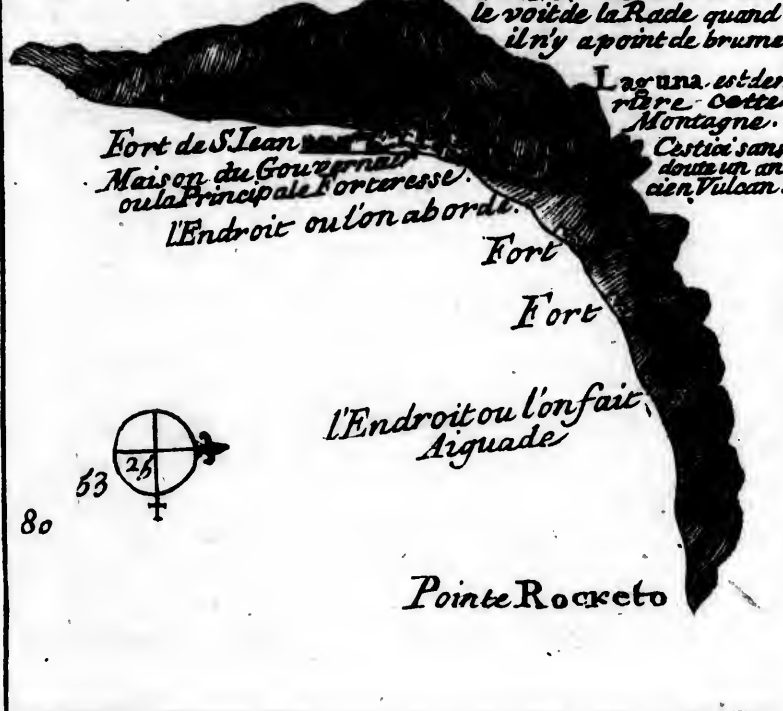 le voit de la Rade quand
il n'y a point de brume
Laguna est der
riere cette
Montagne.
C'est ici sans
doute un an
cien Vulcan.
Fort de S. Iean
Maison du Gouvernair
ou la Principale Forteresse.
l'Endroit ou l'on aborde.
Fort
Fort
l'Endroit ou l'on fait
Aiguade
53
25
80
Pointe Rocketo